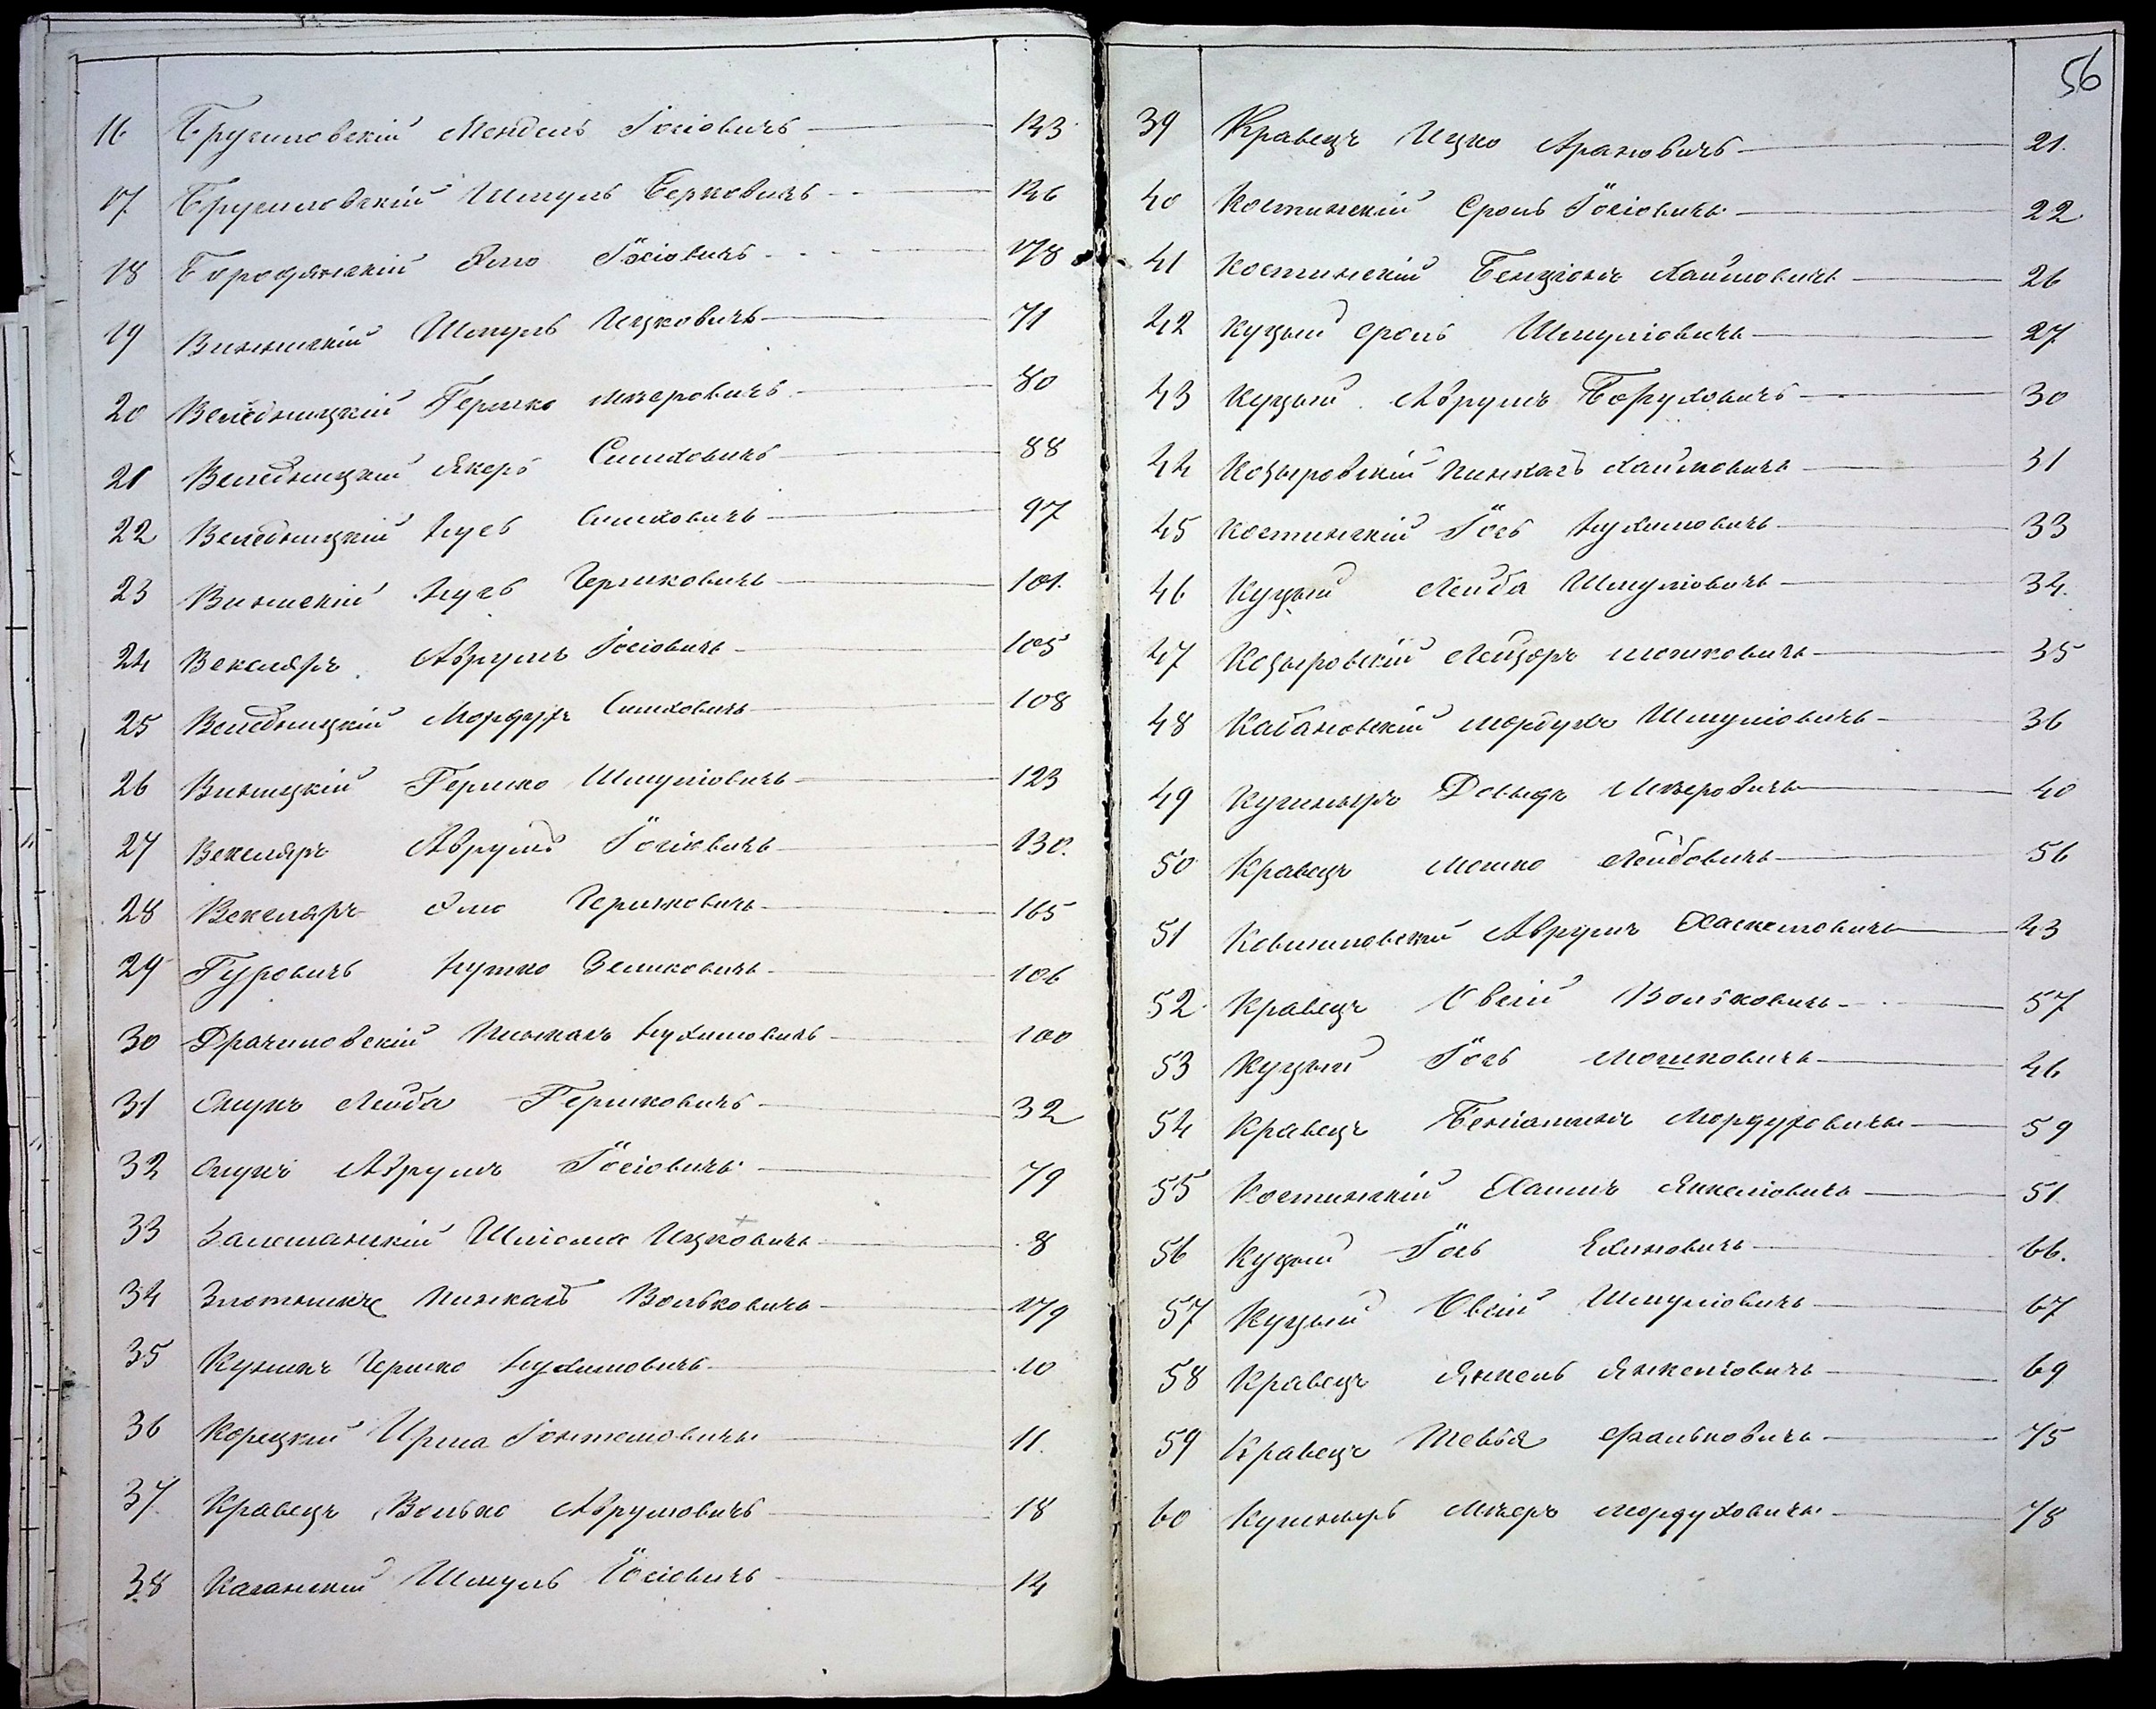 16 Брусиловскій Мендель Іосіовичъ 143
17 Брусиловскій Шмуль Берковичъ 146
18 Бородянскій Элю Іосіовичъ 178
19 Винницкій Шмуль Ицковичъ 71
20 Веледницкій Гершко Меровичъ 80
21 Веледницкій Симховичъ 88
22 Веледницкій Нусь Симховичъ 97
23 Нусь Гершковичъ 101.
24 Векслярь Аврумъ Іосіовичъ 105
25 Веледницкій Мордухъ Симховичъ 108
26 Виницкій Гершко Шмуліовичъ 123
27 Векслярь Аврумъ Іосіовичъ 130.
28 Векслярь Элю Гершковичъ 165
29 Гуровичъ Нутко Зельковичъ 106
30 Драчиловскій Пинхасъ Нухимовичъ 100
31 Лейба Гершковичъ 32
32 Аврумъ Іосіовичъ 79
33 Шліома Ицковичъ 8
34 Злотникъ Пинхасъ Вольковичъ 179
35 Куникъ Гершко Нухимовичъ 10
36 Корецкій Ирша 11.
37 Кравецъ Волько Аврумовичъ 18
38 Каганскій Шмуль Іосіовичъ 14
56
39 Кравецъ Ицко Ароновичъ 21.
40 Костинскій Сроль Іосіовичъ 22
41 Костинскій Бенціонъ Хаимовичъ 26
42 Куцый Сроль Шмуліовичъ 27
43 Куцый Аврумъ Боруховичъ 30
44 Козыровскій Пинхасъ Хаимовичъ 31
45 Костинскій Іось Нухимовичъ 33
46 Куцый Лейба Шмуліовичъ 34.
47 Козыровскій Лейзоръ Мошковичъ 35
48 Кабановскій Мордухъ Шмуліовичъ 36
49 Кушныръ Довыдъ Меровичъ 40
50 Кравецъ Мошко Лейбовичъ 56
51 Аврумъ Хаскелювичъ 43
52 Кравецъ Овсій Вольковичъ 57
53 Куцый Іось Мошковичъ 46
54 Кравецъ Беніаминъ Мордуховичъ 59
55 Костинскій Хаимъ Янкеліовичъ 51.
56 Куцый Іось 66.
57 Куцый Овсій Шмуліовичъ 67
58 Кравецъ Янкель Янкеліовичъ 69
59 Кравецъ Тевья Фальковичъ 75
60 Кушныръ Меръ Мордуховичъ 78